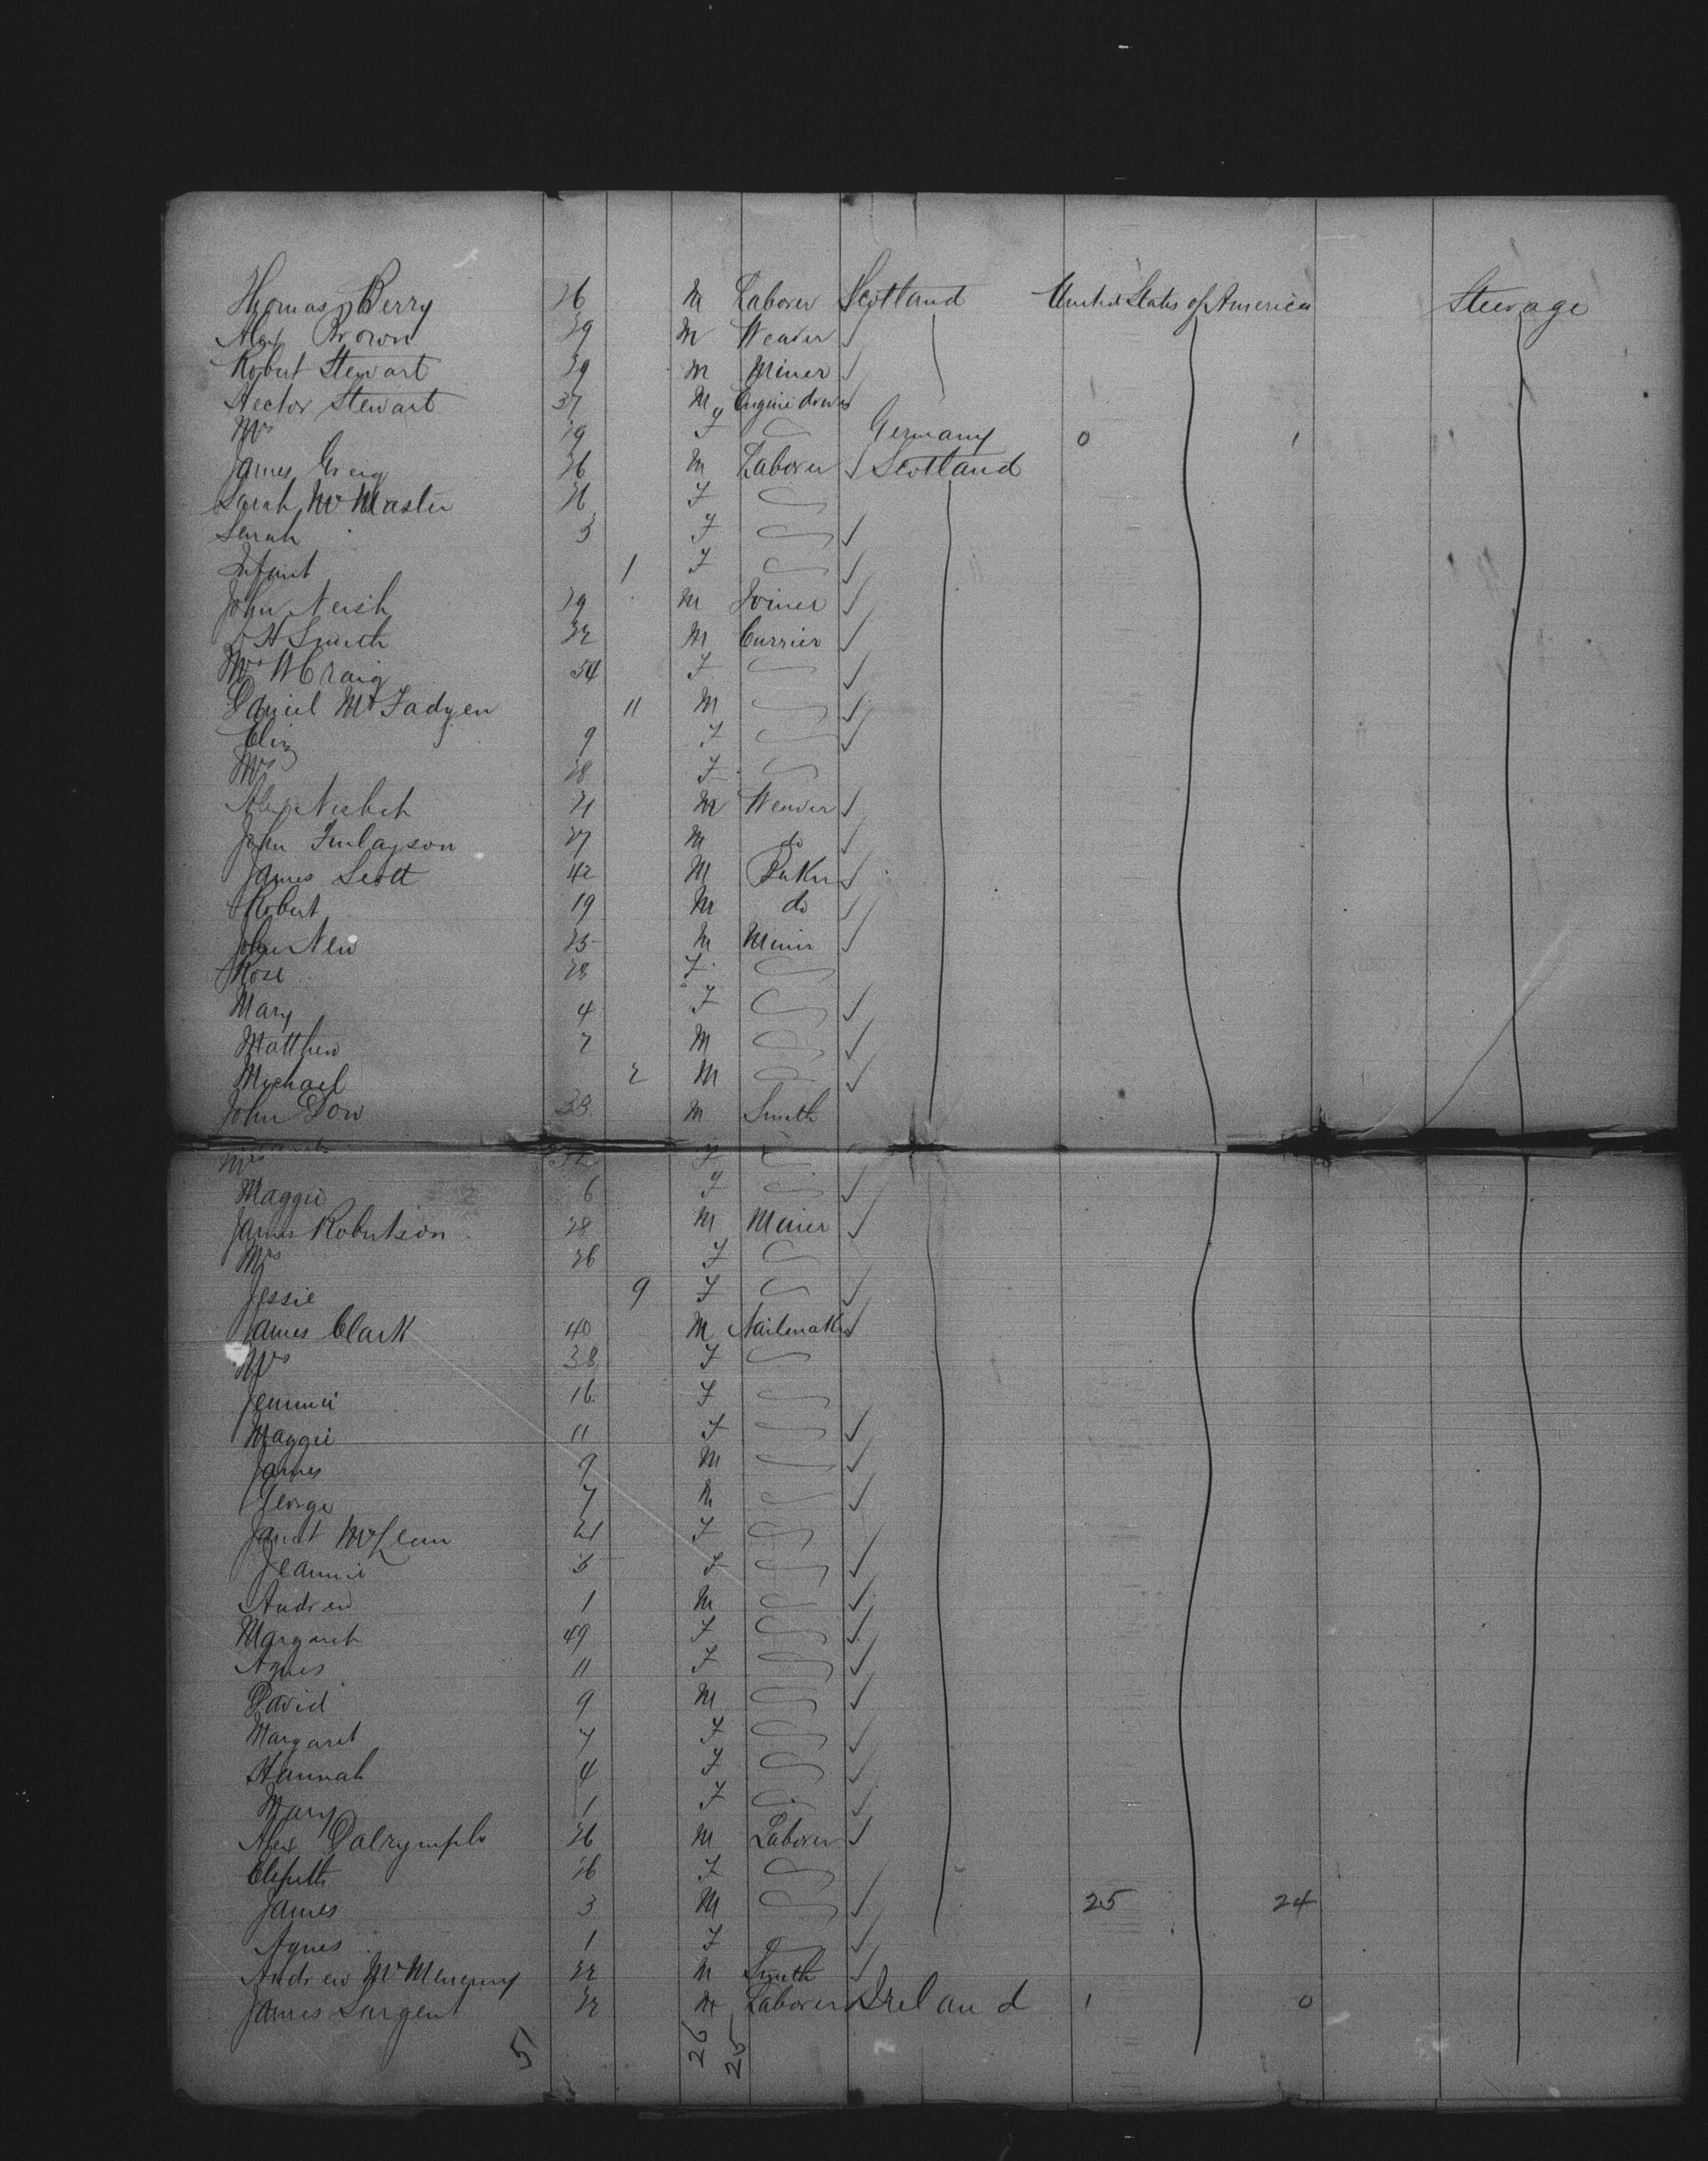 Thomas Berry 26 M Laborer Scotland United States of America Steerage
Alex Brown 29 M Weaver
Robert Stewart 29 M Miner
Hector Stewart 37 M Engine driver
Mrs 29 F Germany 0 1
James Greig 26 M Laborer Scotland
Sarah McMaster 26 F
Sarah 3 F
Infant 1 F
John Neish 29 M Joiner
D H Smith 22 M Currier
Mrs W Craig 54 F
Daniel McFadyen 11 M
Eliz 9 F
Mrs 28 F
Alex Nisbet 21 M Weaver
John Finlayson 27 M do
James Scott 42 M Baker
Robert 19 M do
John New 25 M Miner
Rose 28 F
Mary 4 F
Matthew 2 M
Michael 2 M
John Dow 33 M Smith
Mrs 32 F
Maggie 6 F
James Robertson 28 M Miner
Mrs 26 F
Jessie 9 F
James Clark 40 M Nailmaker
Mrs 38 F
Jemima 16 F
Maggie 11 F
James 9 M
George 7 M
Janet McLean 21 F
Jeannie 3 F
Andrew 1 M
Margaret 49 F
Agnes 11 F
David 9 M
Margaret 7 F
Hannah 4 F
Mary 1 F
Alex Dalrymple 26 M Laborer
Elspeth 26 F
James 3 M 25 24
Agnes 1 F
Andrew McMenemy 22 M Smith
James Sargent 22 M Laborer Ireland 1 0
5 26 25